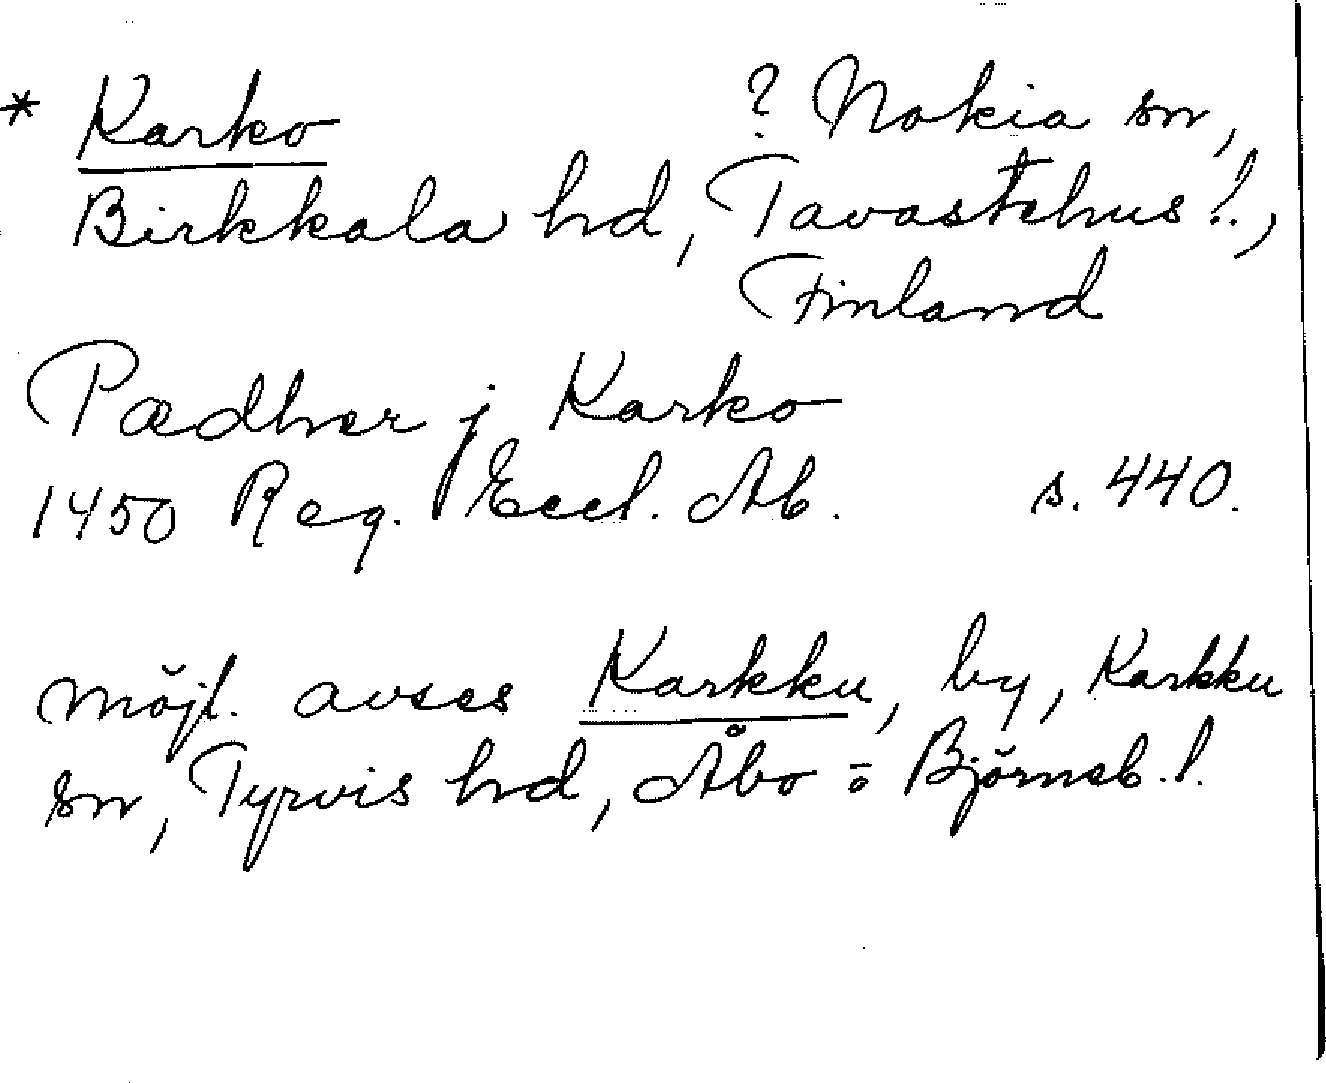 * Karko ? Nokia sn,
Birkkala hd, Tavastehus l.,
Finland
Pædher j Karko
1450 Reg. Eccl. Ab. s. 440.
möjl. avses Karkku, by, Karkku
sn, Tyrvis hd, Åbo o Björneb. l.